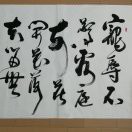 寵辱不
驚看庭
前花
開花落
去留無